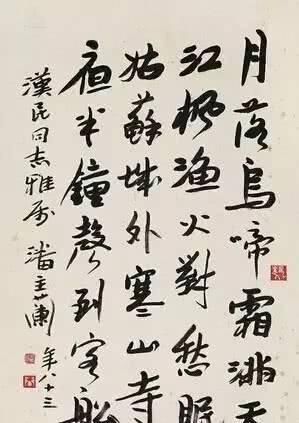 月落烏啼霜滿天
江楓漁火對愁眠
姑蘇城外寒山寺
夜半鐘聲到客船
漢昆同志雅屬
潘主蘭
年八十三